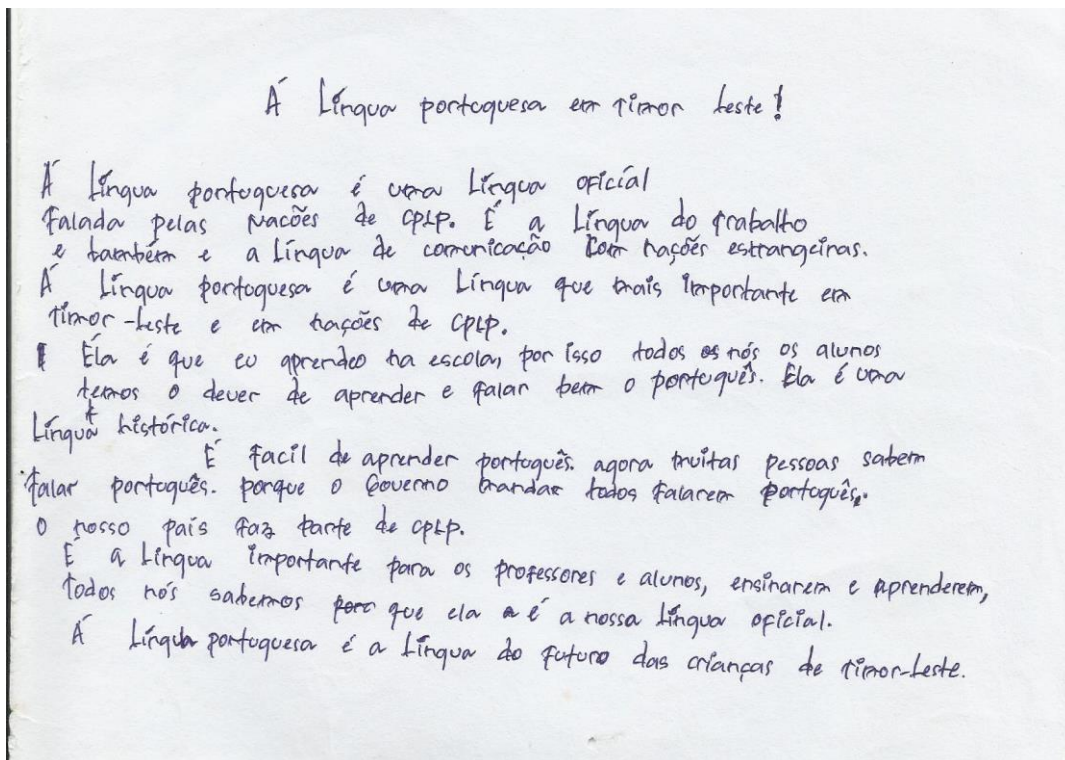 Á Língua portuguesa em timor leste!
Á Língua portuguesa é uma Língua oficíal
falada pelas Nacões de CPLP. É a Língua do trabalho
e também e a Língua de comunicação com nações estrangeiras.
Á Língua portuguesa é uma Língua que mais importante em
timor-Leste e em nações de CPLP.
Éla é que eu aprendeo na escola, por isso todos nós os alunos
temos o dever de aprender e falar bem o português. Ela é uma
Língua histórica.
É facil de aprender português. agora muitas pessoas sabem
falar português. porque o Governo mandar todos falarem português.
O nosso país faz parte de CPLP.
É a Língua importante para os professores e alunos, ensinarem e aprenderem,
todos nós sabermos que ela é a nossa Língua oficial.
Á Língua portuguesa é a Língua do futuro das crianças de timor-Leste.